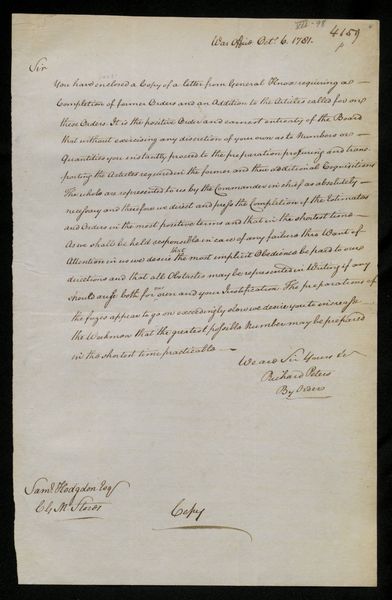 VII-98
4159
War Office Octr. 6. 1781.
Sir
You have enclosed a Copy of a letter from General Knox requiring a
Completion of former Orders and an Addition to the Articles called for on
these Orders. It is the positive Order and earnest entreaty of the Board
that without exercising any discretion of your own as to Numbers or
Quantities you instantly proceed to the preparation procuring and trans
porting the Articles required in the former and these additional Requisitions
The whole are represented to us by the Commander in chief as absolutely
necessary and therefore we direct and press the Completion of the Estimates
and Orders in the most positive terms and that in the shortest time
As we shall be held responsible in case of any failure thro Want of
Attention in us we desire that the most implicit Obedience be paid to our
directions and that all Obstacles may be represented in Writing if any
should arise both for our own and your Justification The preparations of
the fuzes appear to go on exceedingly slow we desire you to encrease
the Workmen that the greatest possible Number may be prepared
in the shortest time practicable
We are Sir Yours &c
Richard Peters
By Order
Saml. Hodgdon Esqr
C G M Stores
Copy